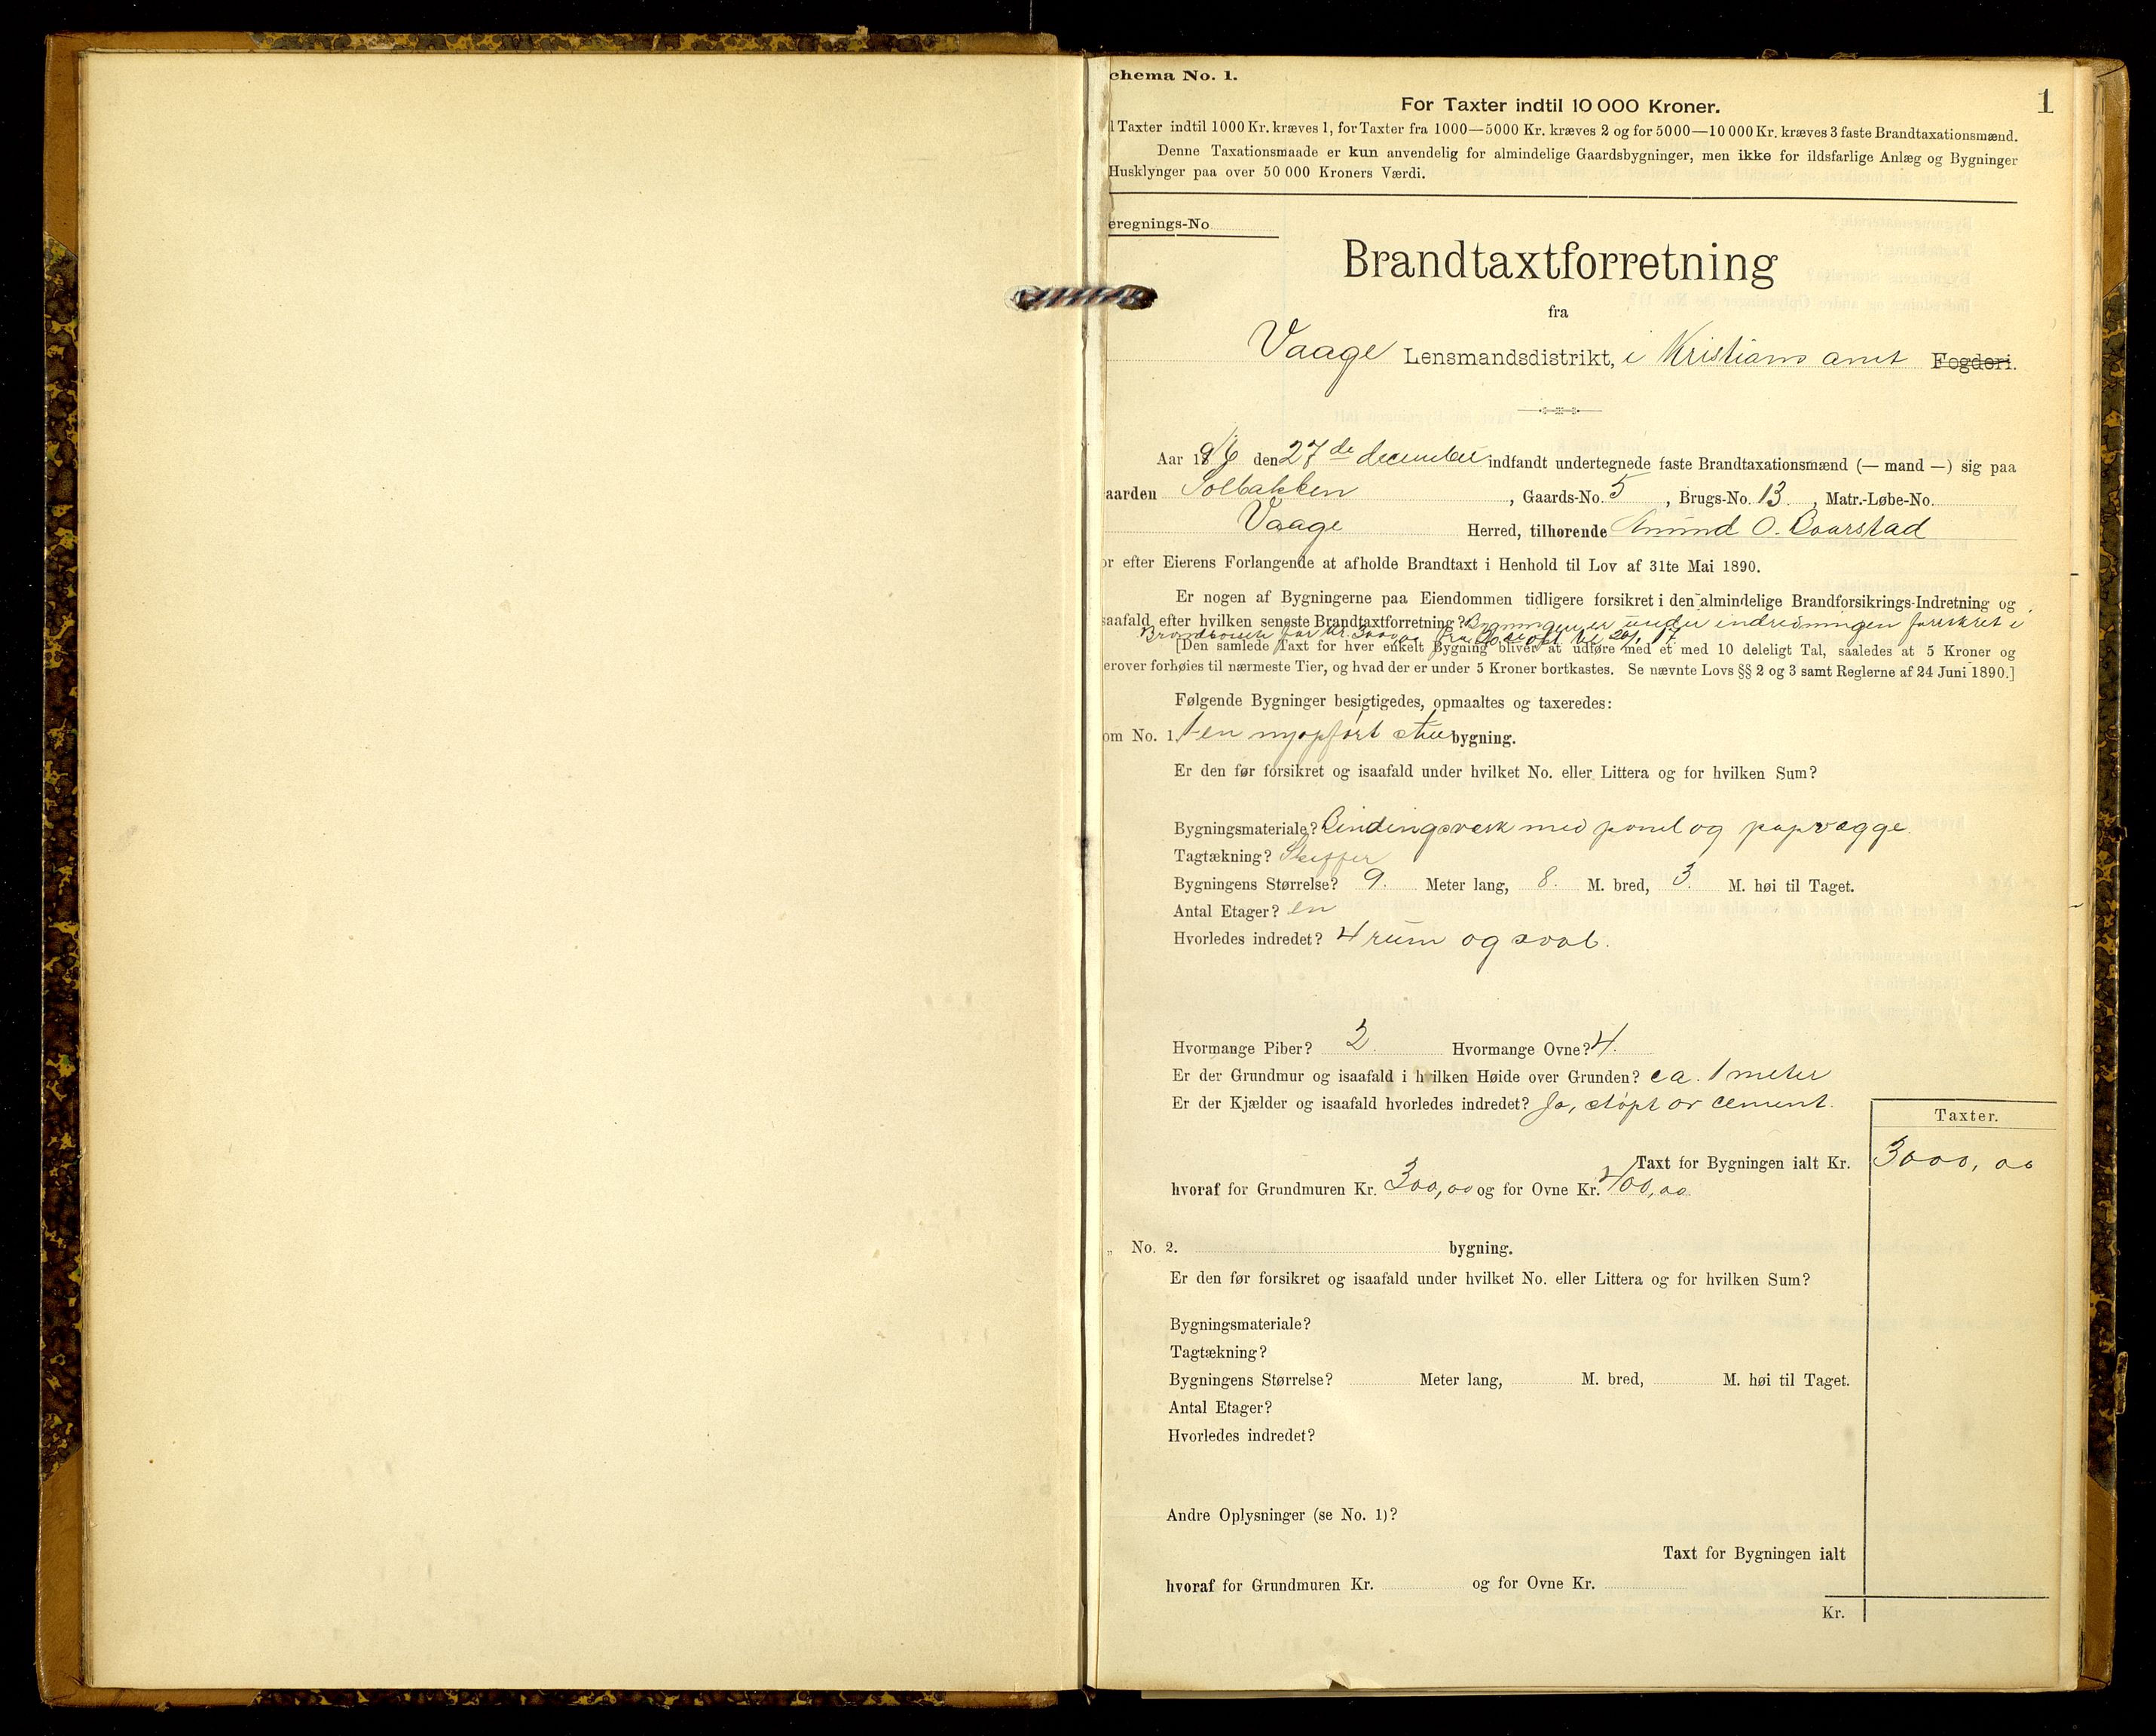 chema No. 1.
1
For Taxter indtil 10 000 Kroner.
l Taxter indtil 1000 Kr. kræves 1, for Taxter fra 1000—5000 Kr. kræves 2 og for 5000—10 000 Kr. kræves 3 faste Brandtaxationsmænd.
Denne Taxationsmaade er kun anvendelig for almindelige Gaardsbygninger, men ikke for ildsfarlige Anlæg og Bygninger
Husklynger paa over 50 000 Kroners Værdi.
eregnings-No
Brandtaxtforretning
fra
Vaage Lensmandsdistrikt, i Kristians amt Fogderi.
Aar 1916 den 27de december indfandt undertegnede faste Brandtaxationsmænd (— mand —) sig paa
aarden Solbakken, Gaards-No. 5, Brugs-No. 13, Matr.-Løbe-No.
Vaage Herred, tilhørende Amund O. Baarstad
or efter Eierens Forlangende at afholde Brandtaxt i Henhold til Lov af 31te Mai 1890.
Er nogen af Bygningerne paa Eiendommen tidligere forsikret i den almindelige Brandforsikrings-Indretning og
saafald efter hvilken seneste Brandtaxtforretning? Bygningen er under indredningen forsikret i
Brandkassen for kr. 3000,00 fra til 20/1 17.
[Den samlede Taxt for hver enkelt Bygning bliver at udføre med et med 10 deleligt Tal, saaledes at 5 Kroner og
erover forhøies til nærmeste Tier, og hvad der er under 5 Kroner bortkastes. Se nævnte Lovs §§ 2 og 3 samt Reglerne af 24 Juni 1890.]
Følgende Bygninger besigtigedes, opmaaltes og taxeredes:
om No. 1. 1 en nyopført stuebygning.
Er den før forsikret og isaafald under hvilket No. eller Littera og for hvilken Sum?
Bygningsmateriale? Bindingsverk med panel og papvægge.
Tagtækning? Skiffer
Bygningens Størrelse? 9. Meter lang, 8. M. bred, 3. M. høi til Taget.
Antal Etager? en
Hvorledes indredet? 4 rum og sval.
Hvormange Piber? 2. Hvormange Ovne? 4.
Er der Grundmur og isaafald i hvilken Høide over Grunden? ca. 1 meter
Er der Kjælder og isaafald hvorledes indredet? Ja, støpt av cement.
Taxter.
Taxt for Bygningen ialt Kr. 3000,00
hvoraf for Grundmuren Kr. 300,00 og for Ovne Kr. 400,00.
„ No. 2. bygning.
Er den før forsikret og isaafald under hvilket No. eller Littera og for hvilken Sum?
Bygningsmateriale?
Tagtækning?
Bygningens Størrelse? Meter lang, M. bred, M. høi til Taget.
Antal Etager?
Hvorledes indredet?
Andre Oplysninger (se No. 1)?
Taxt for Bygningen ialt
hvoraf for Grundmuren Kr. og for Ovne Kr.
Kr.